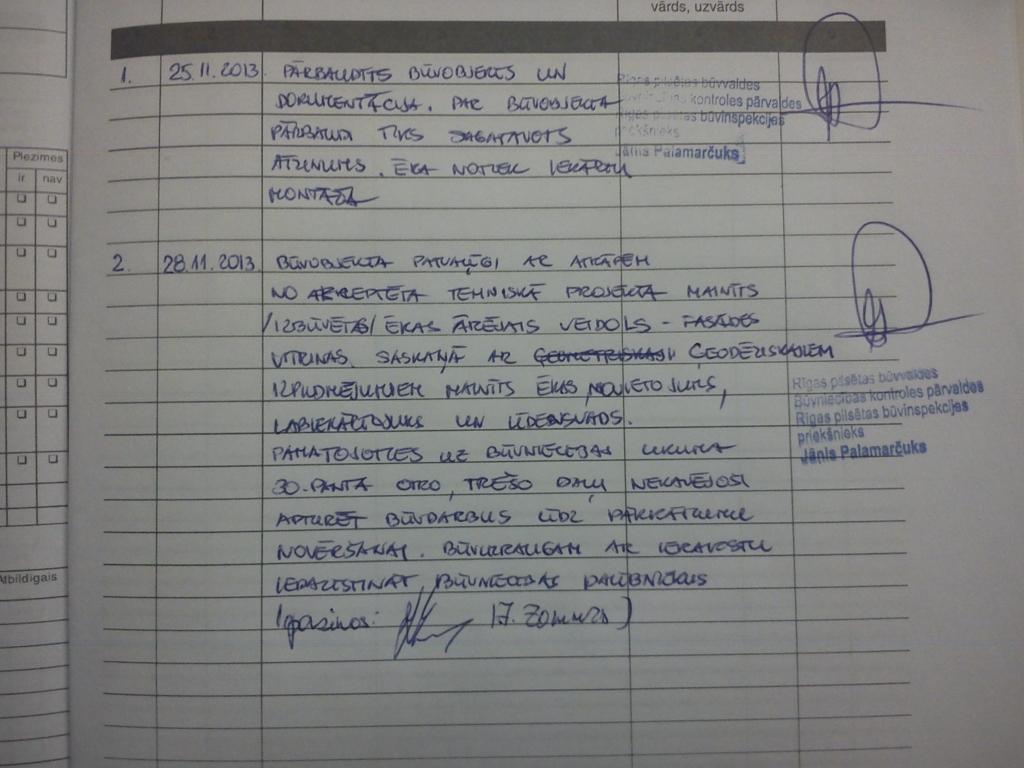 vārds, uzvārds
1. 25.11.2013. PĀRBAUDĪTS BŪVOBJEKTS UN
DOKUMENTĀCIJA. PAR BŪVOBJEKTA
PĀRBAUDI TIKS SAGATAVOTS
ATZINUMS. ĒKĀ NOTIEK IEKĀRTU
MONTĀŽA
Rīgas pilsētas būvvaldes
Būvniecības kontroles pārvaldes
Rīgas pilsētas būvinspekcijas
priekšnieks
Jānis Palamarčuks
2. 28.11.2013. BŪVOBJEKTĀ PATVAĻĪGI AR ATKĀPĒM
NO AKCEPTĒTA TEHNISKĀ PROJEKTA MAINĪTS
/IZBŪVĒTAS/ ĒKAS ĀRĒJAIS VEIDOLS - FASĀDES
VITRĪNAS. SASKAŅĀ AR ĢEODĒZISKAJIEM
IZPILDMĒRĪJUMIEM MAINĪTS ĒKAS NOVIETOJUMS,
LABIEKĀRTOJUMS UN ŪDENSVADS.
PAMATOJOTIES UZ BŪVNIECĪBAS LIKUMA
30. PANTA OTRO, TREŠO DAĻU NEKAVĒJOŠI
APTURĒT BŪVDARBUS LĪDZ PĀRKĀPUMU
NOVĒRŠANAI. BŪVUZRAUGAM AR IERAKSTU
IEPAZĪSTINĀT BŪVNIECĪBAS DALĪBNIEKUS
Rīgas pilsētas būvvaldes
Būvniecības kontroles pārvaldes
Rīgas pilsētas būvinspekcijas
priekšnieks
Jānis Palamarčuks
Piezīmes
ir nav
Atbildīgais